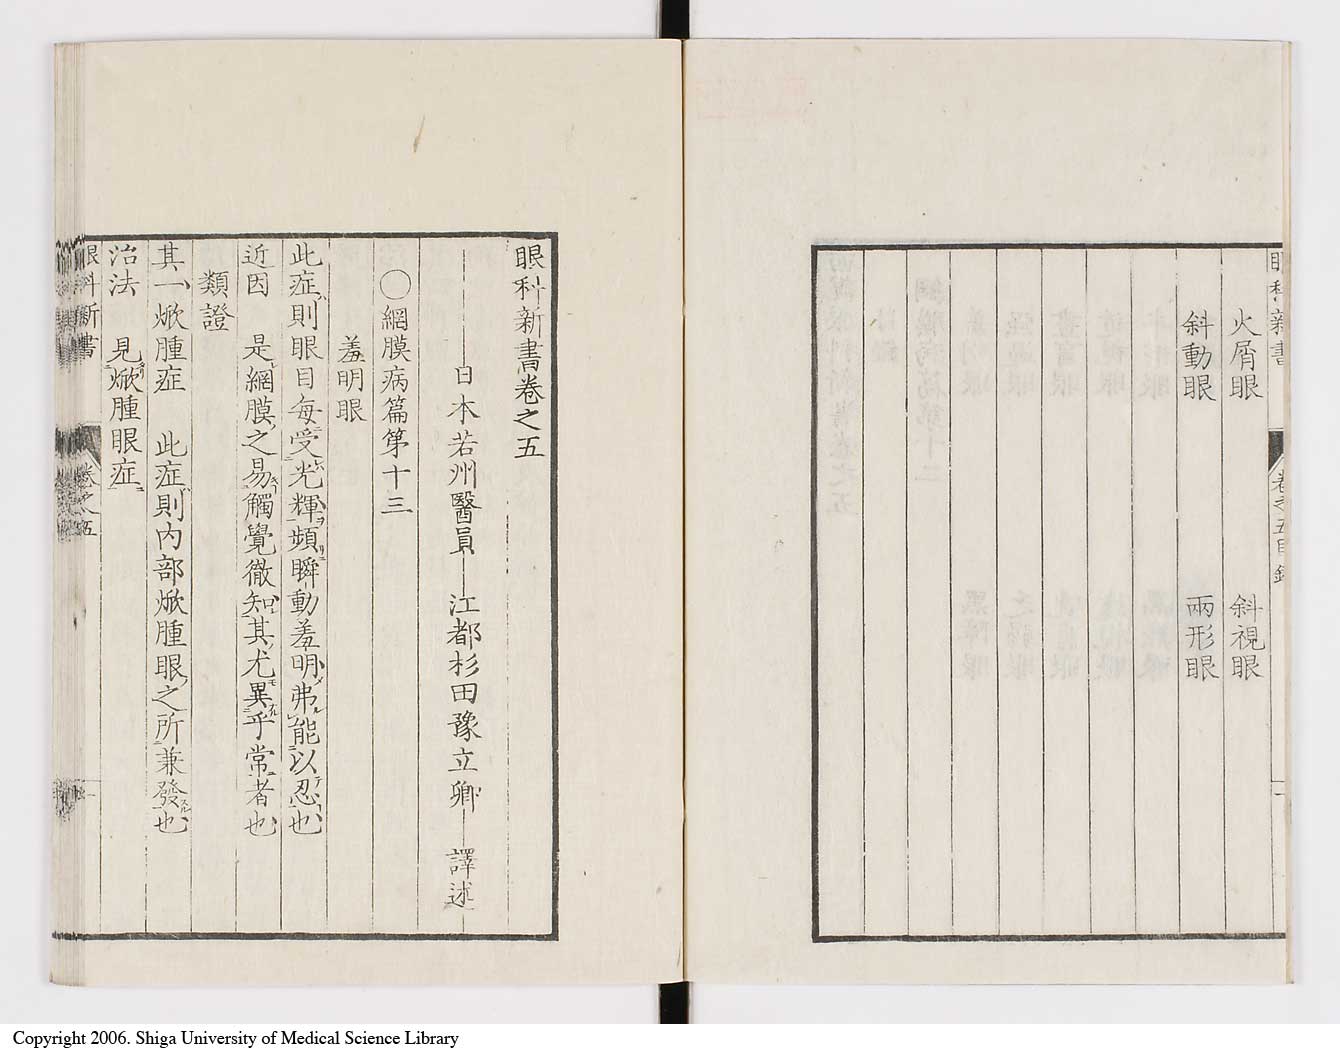 眼科新書
卷之五目錄
火屑眼　斜視眼
斜動眼　兩形眼
眼科新書卷之五
日本若州醫員　江都杉田豫立卿　譯述
〇網膜病篇第十三
羞明眼
此症則眼目每受光輝頻瞬動羞明弗能以忍也
近因　是網膜之易觸覺徹知其尤異乎常者也
類證
其一焮腫症　此症則内部焮腫眼之所兼發也
治法　見焮腫眼症
眼科新書
卷之五
一
Copyright 2006. Shiga University of Medical Science Library